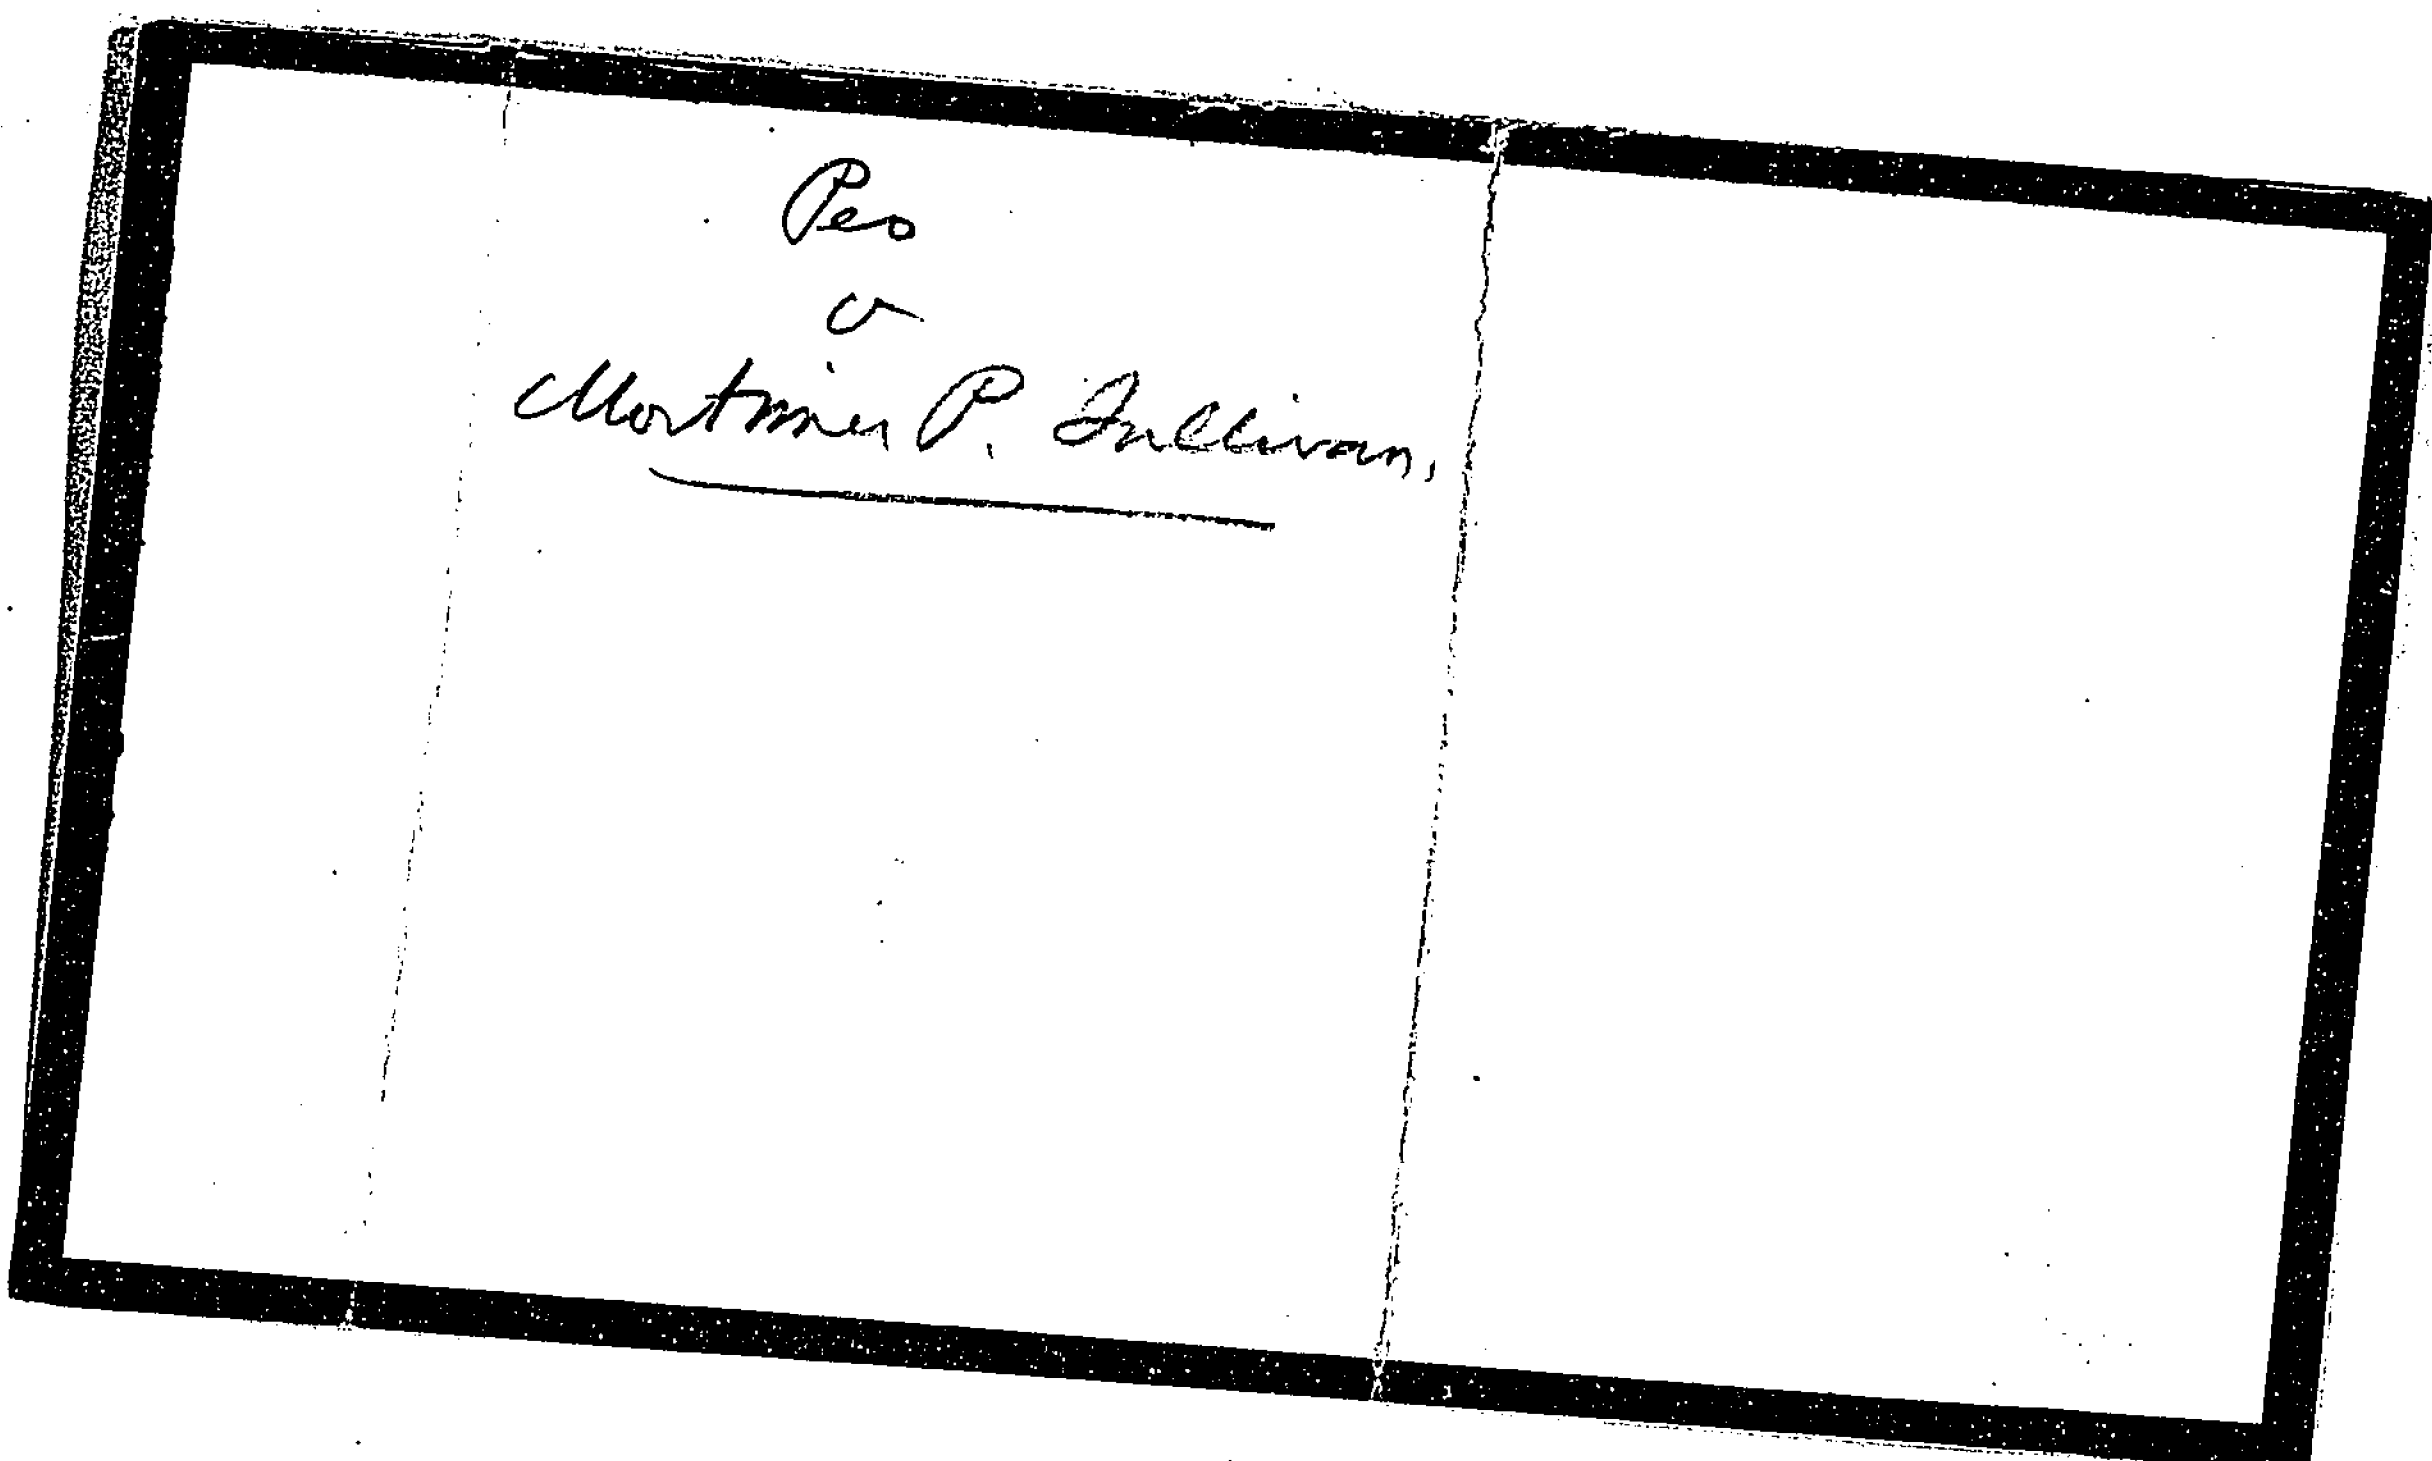 Peo
v
Mortimer P. Sullivan,